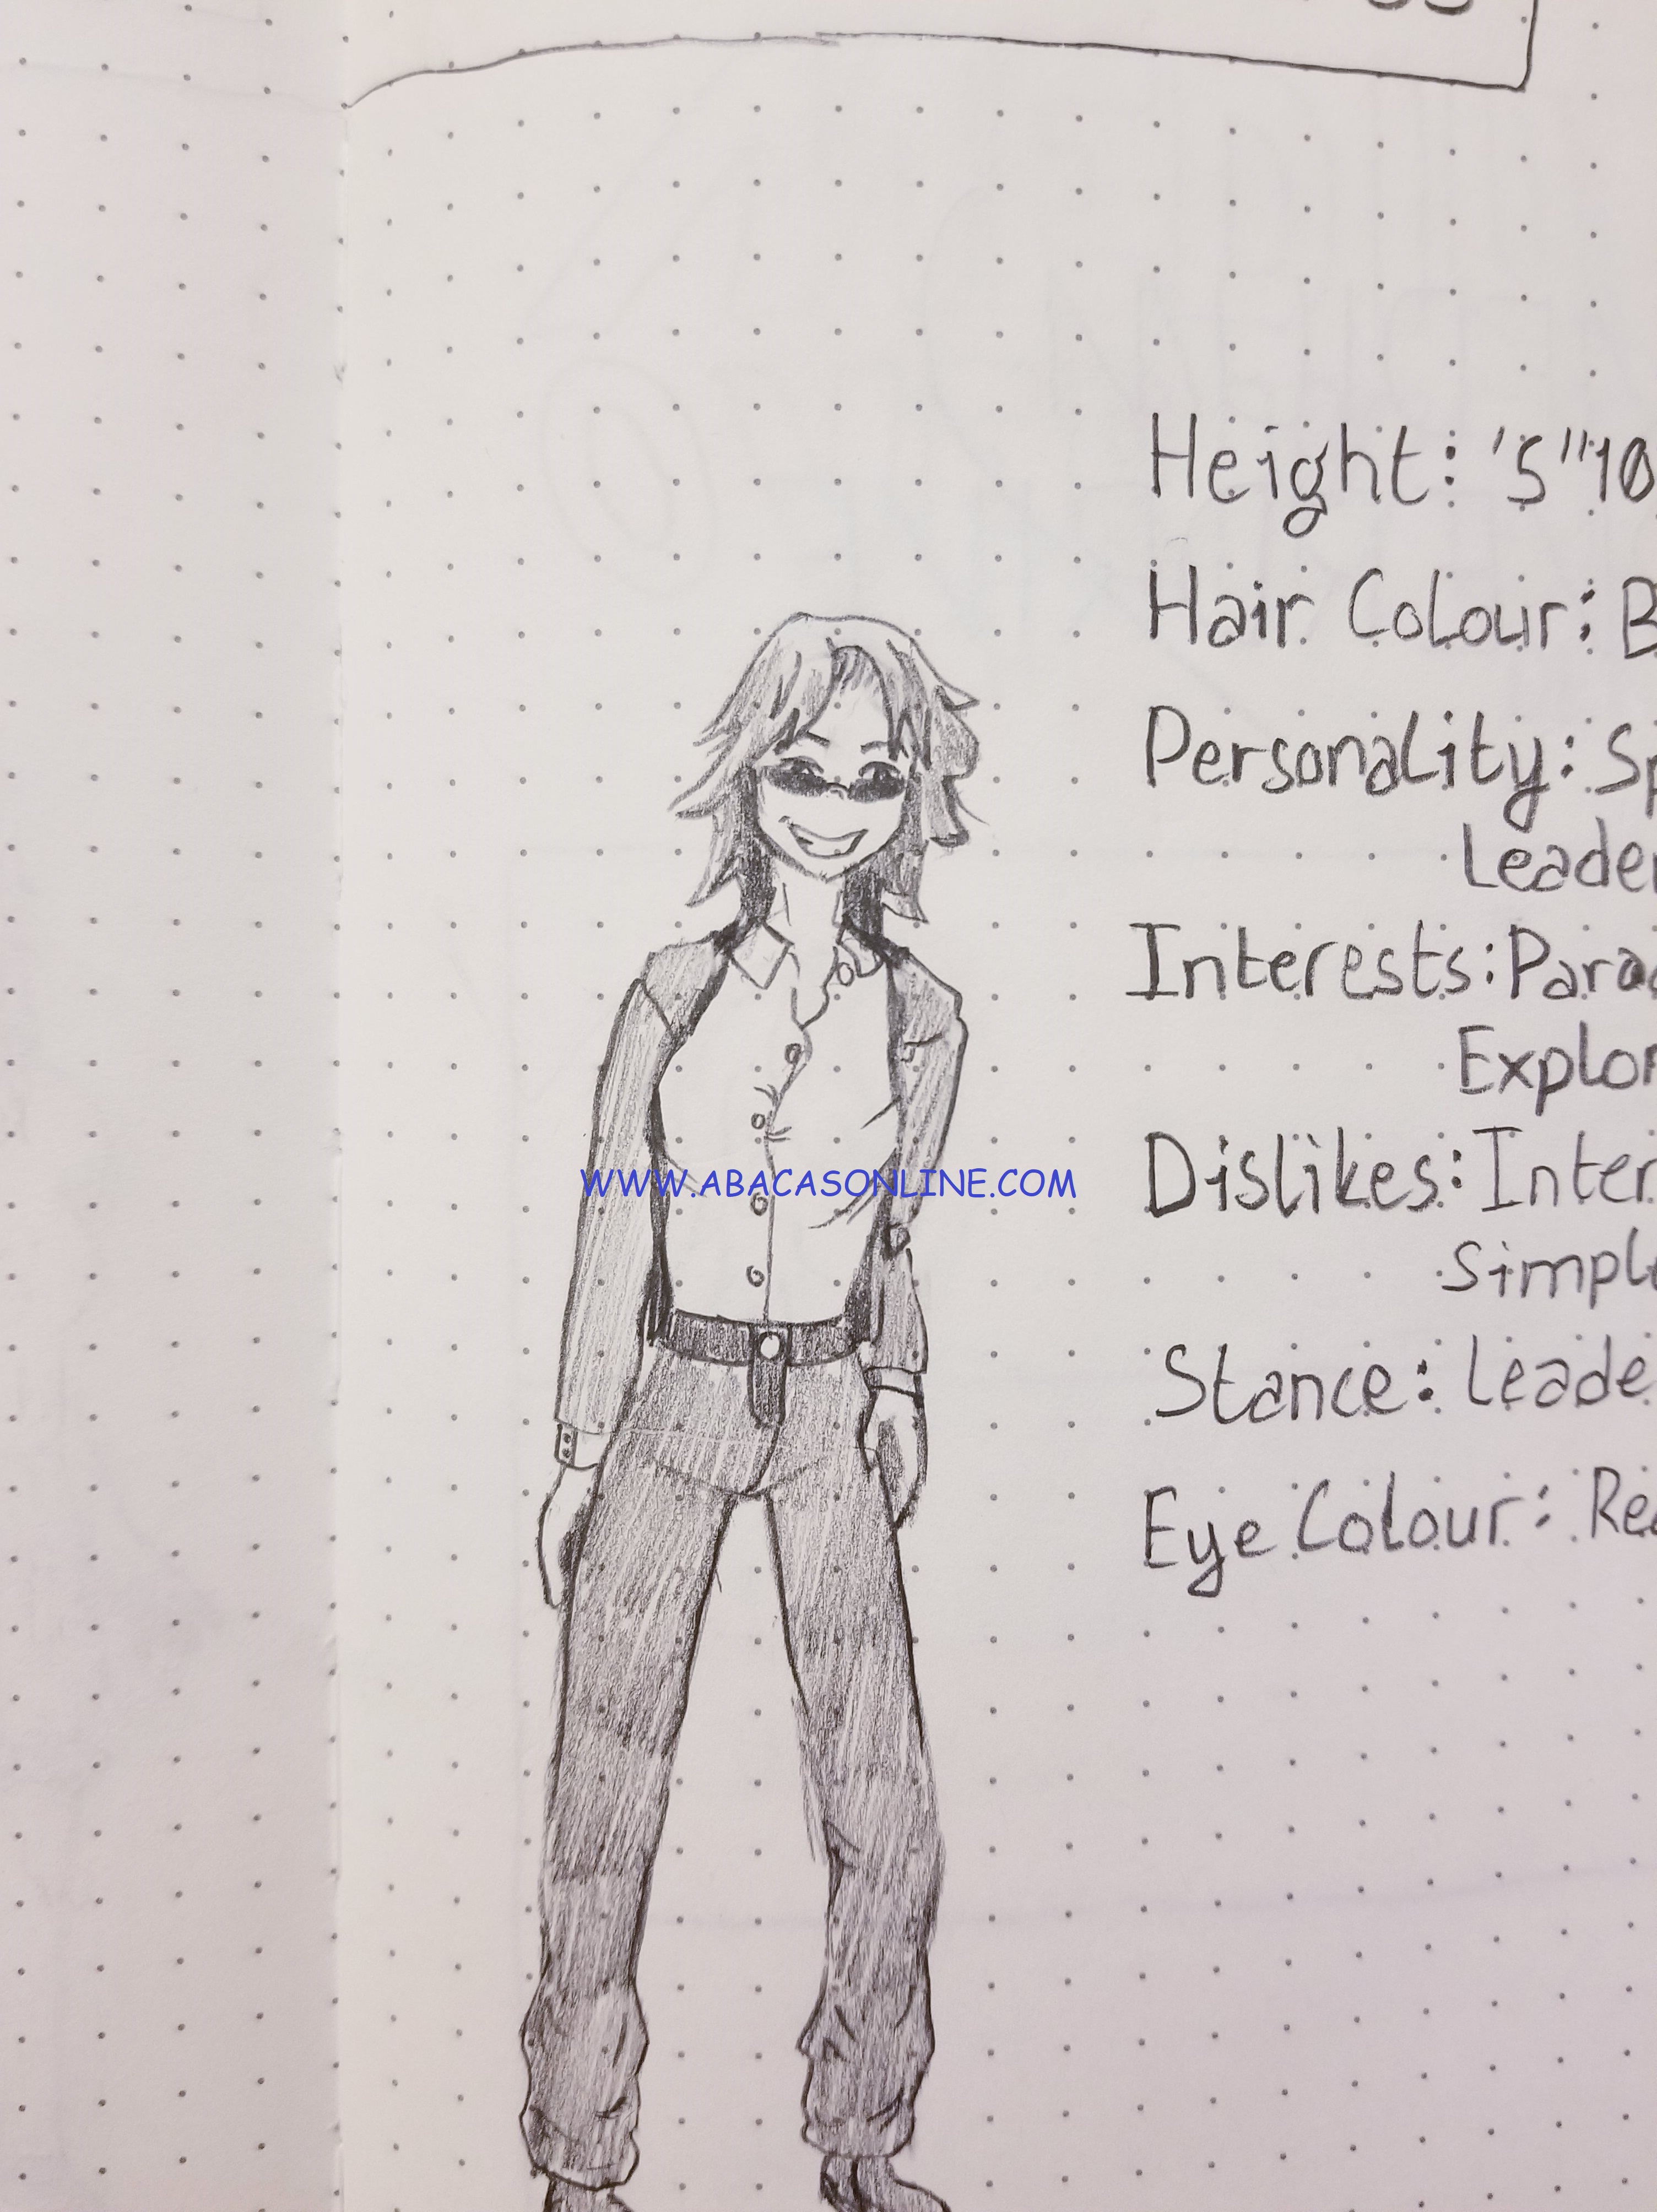 Height: '5"10
Hair Colour: B
Personality: Sp
Leader
Interests: Para
Explor
Dislikes: Inter
Simple
Stance: Leade
Eye Colour: Re
WWW.ABACASONLINE.COM